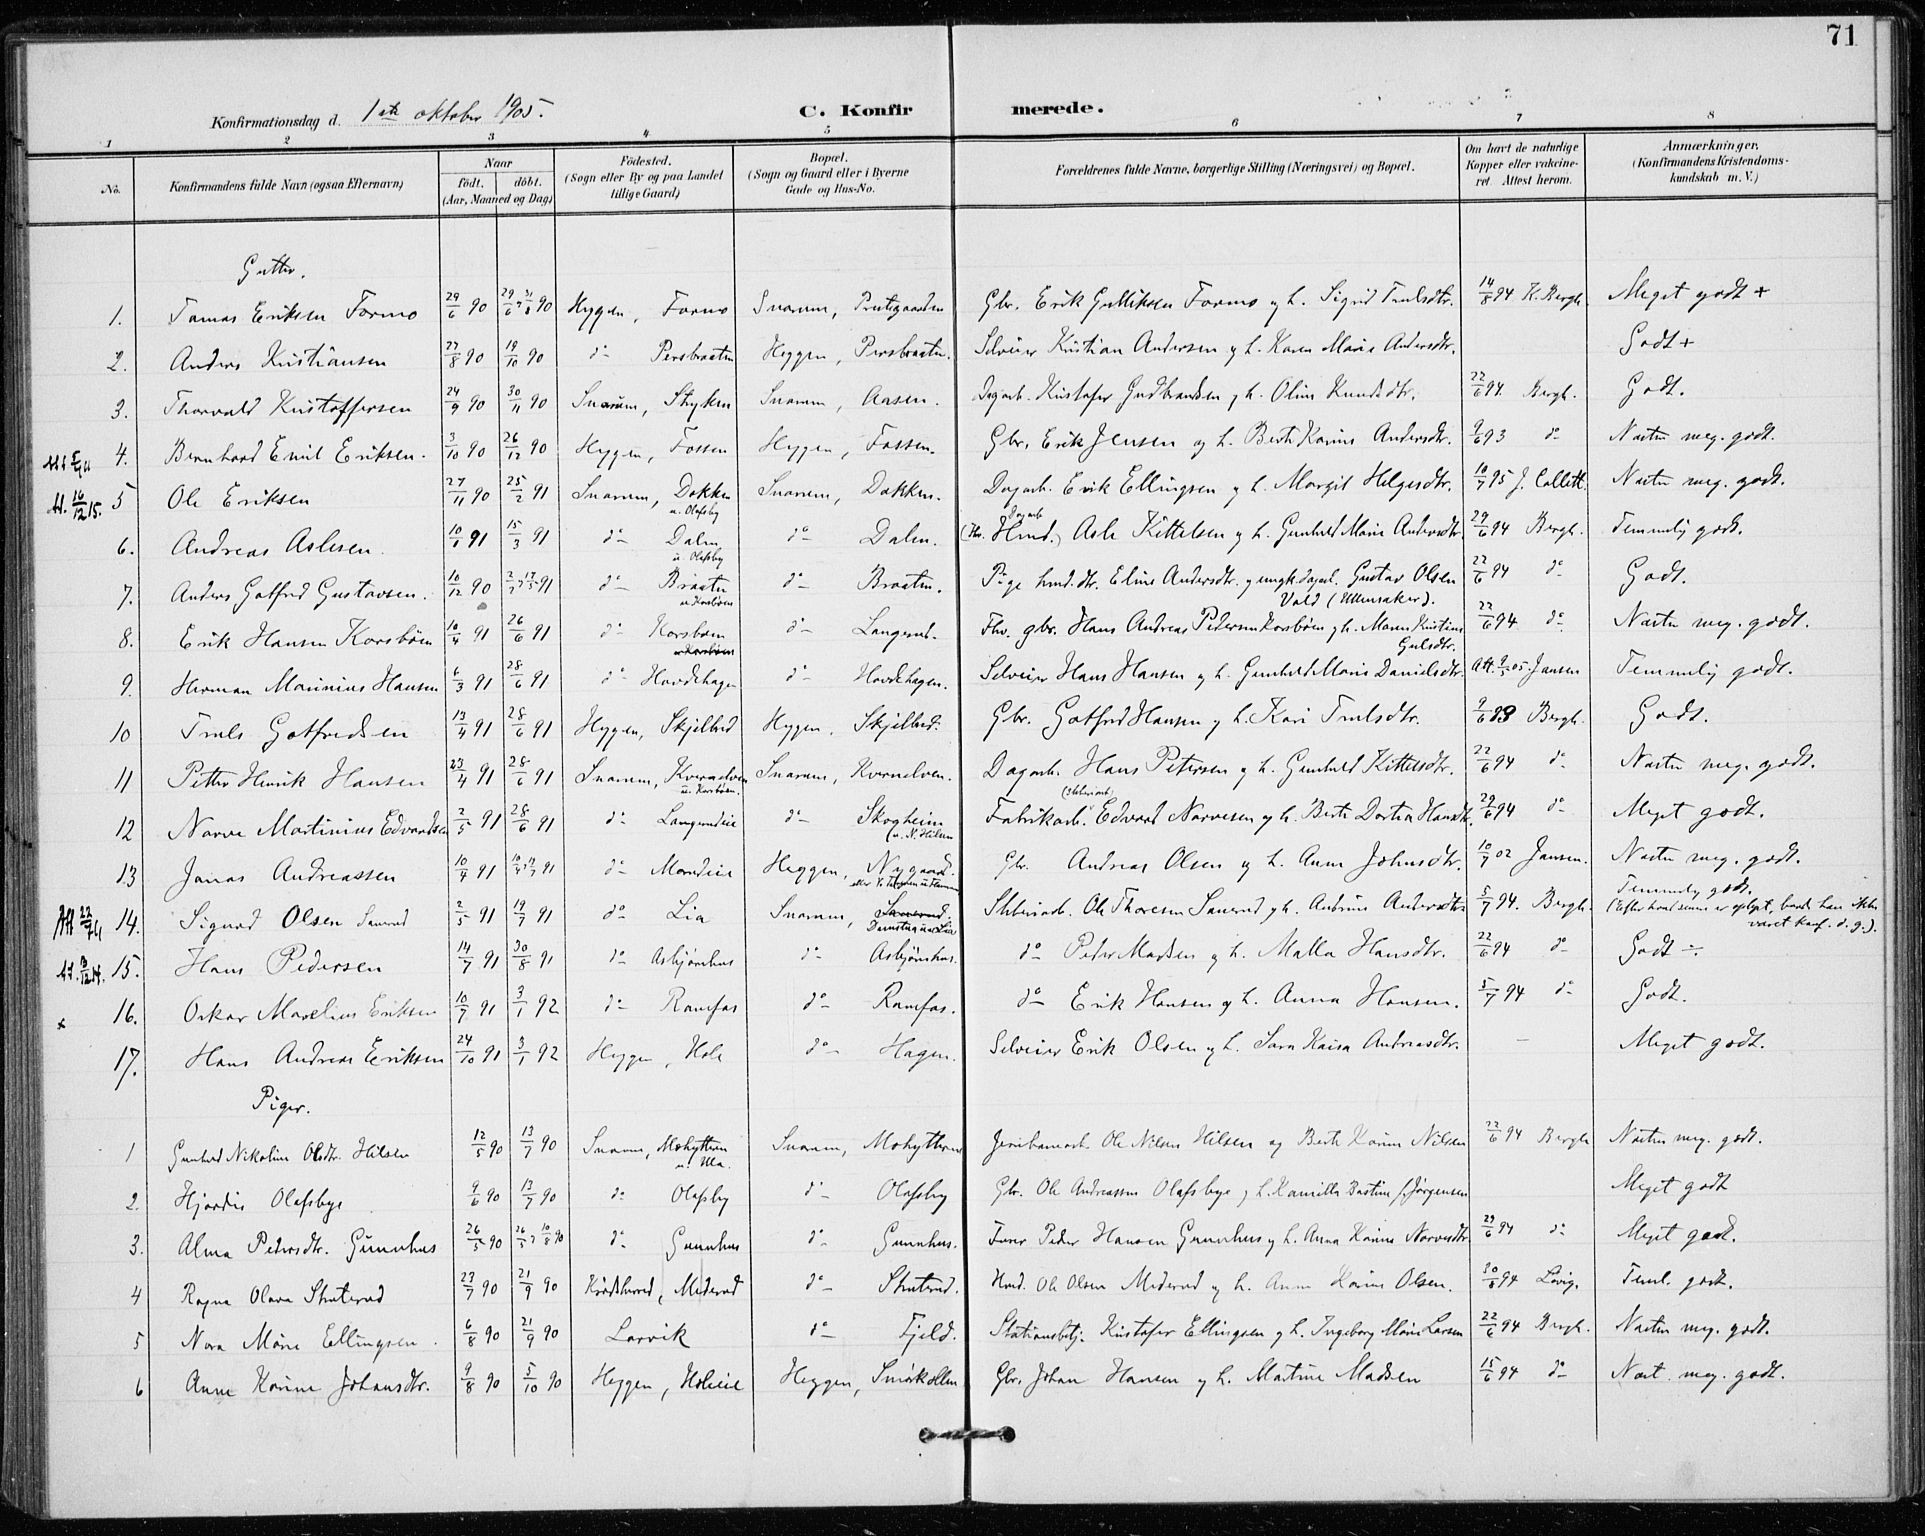 71
Konfirmationsdag d. 1ste oktober 1905. C. Konfirmerede.
1 2 3 4 5 6 7 8
No. Konfirmandens fulde Navn (ogsaa Efternavn) Naar født. døbt. (Aar, Maaned og Dag) Fødested. (Sogn eller By og paa Landet tillige Gaard) Bopæl. (Sogn og Gaard eller i Byerne Gade og Hus-No. Forældrenes fulde Navne, borgerlige Stilling (Næringsvei) og Bopæl. Om havt de naturlige Kopper eller vakcineret. Attest herom. Anmærkninger. (Konfirmandens Kristendomskundskab m. V.)
Gutter.
1. Tomas Eriksen Formo 29/6 90 29/6 31/8 90 Hyggen, Formo Snarum, Prestgaarden Gbr. Erik Gulliksen Formo og h. Sigrid Trulsdtr. 14/8 94 K. Bergh. Meget godt +
2. Anders Kristiansen 27/8 90 19/10 90 do Persbraaten Heggen, Persbraaten. Selveier Kristian Andersen og h. Karen Marie Andersdtr. Godt +
3. Thorvald Kristoffersen 24/9 90 30/11 90 Snarum, Stryken Snarum, Aasen. Dagarb. Kristofer Gudbrandsen og h. Oline Knudsdtr. 22/6 94. Bergh. Godt.
4. Bernhard Emil Eriksen. 3/10 90 26/12 90 Hyggen, Fossen Hyggen, Fossen. Gbr. Erik Jensen og h. Berte Karine Andersdtr. 9/6 93 do Næsten meg. godt.
16/12 15. 5 Ole Eriksen 27/11 90 25/2 91 Snarum, Dokken u. Olafsby Snarum, Dokken. Dagarb. Erik Ellingsen og h. Margit Helgesdtr. 10/7 95 J. Collett. Næsten meg. godt.
6. Andreas Aslesen. 10/1 91 15/3 91 do Dalen u. Olafsby do Dalen. (Fhv. Hmd.) dagarb. Asle Kittelsen og h. Gunhild Marie Andersdtr. 29/6 94 Bergh. Temmelig godt.
7. Anders Gotfred Gustavsen. 10/12 90 91 do Braaten u. Korsbøen do Braaten. Pige hmd.dtr. Eline Andersdtr. og ungk. dagarb. Gustav Olsen Vold (Ullensaker). 22/6 94 do Godt.
8. Erik Hansen Korsbøen 10/4 91 26/6 91 do Korsbøen u. Korsbøen do Langerud. Fhv. gbr. Hans Andreas Pedersen Korsbøen og h. Maren Kristine Gulsdtr. 22/6 94. do Næsten meg. godt.
9. Herman Marinius Hansen 6/3 91 28/6 91 do Hovdehagen do Hovdehagen. Selveier Hans Hansen og h. Gunhild Marie Danielsdtr. Att. 9/5 05. Jansen Temmelig godt.
10 Truls Gotfredsen 13/4 91 28/6 91 Hyggen, Skjelbred Hyggen, Skjelbred. Gbr. Gotfred Hansen og h. Kari Trulsdtr. 9/6 93 Bergh. Godt.
11 Petter Henrik Hansen 23/4 91 28/6 91 Snarum, Kvernelven u. Korsbøen. Snarum, Kvernelven. Dagarb. Hans Petersen og h. Gunhild Kittelsdtr. 22/6 94 do Næsten meg. godt.
12 Narve Martinius Edvardsen 2/5 91 28/6 91 do Langerudeie do Skogheim (u. N. Hilsen Fabrikarb. (Sliberiarb.) Edvard Narvesen og h. Berte Dortea Hansdtr. 29/6 94 do Meget godt.
13 Jonas Andreassen 10/4 91 91 do Moendeie Heggen, Nygaard. Gbr. Andreas Olsen og h. Anne Johnsdtr. 10/7 02 Jansen. Næsten meg. godt.
14. Sigurd Olsen Sanerud 2/5 91 19/7 91 do Lia Snarum, Sanerud. Sliberiarb. Ole Thoresen Sanerud og h. Antrine Andersdtr. 5/7 94. Bergh. Temmelig godt. (Efter hvad senere er oplyst, burde han ikke været konf. d. g.).
15. Hans Pedersen 14/7 91 30/8 91 do Asbjørnhus do Asbjørnhus. do Peter Madsen og h. Malla Hansdtr. 22/6 94 do Godt ÷
x 16. Oskar Marelius Eriksen 10/7 91 3/1 92 do Ramfos do Ramfos. do Erik Hansen og h. Anna Hansen. 5/7 94 do Godt.
17. Hans Andreas Eriksen 24/10 91 3/1 92 Hyggen, Hole do Hagen. Selveier Erik Olsen og h. Sara Kaisa Andreasdtr. — Meget godt.
Piger.
1 Gunhild Nikoline Olsdtr. Hilsen 12/5 90 13/7 90 Snarum, Mohytteren u. Ula. Snarum, Mohytteren Jernbanearb. Ole Nilsen Hilsen og Berte Karine Nilsen 22/6 94 Bergh Næsten meg. godt.
2. Hjørdis Olafsbye 9/6 90 13/7 90 do Olafsby do Olafsby Gbr. Ole Andreassen Olafsbye og h. Kamilla Bastine f. Jørgensen Meget godt
3. Alma Pedersdtr. Gunnhus 26/5 90 26/5 10/8 90 do Gunnhus do Gunnhus. Peder Hansen Gunnhus og h. Anna Karine Narvesdtr 29/6 94 do Meget godt.
4 Ragna Olava Struterud 23/7 90 21/9 90 Krødsherred, Mederud do Struterud. Hmd. Ole Olsen Mederud og h. Anne Karine Olsen. 94 Løvig. Teml. godt.
5 Nora Marie Ellingsen. 6/8 90 21/9 90 Larvik do Fjeld. Stationsbetj. Kristofer Ellingsen og h. Ingeborg Marie Larsen 22/6 94 Bergh. Næsten meg. godt.
6 Anne Karine Johansdtr. 9/8 90 5/10 90 Heggen, Holeeie Heggen, Snørkollen Gbr. Johan Hansen og h. Martine Madsen 15/6 94 do Næst. meg. godt.